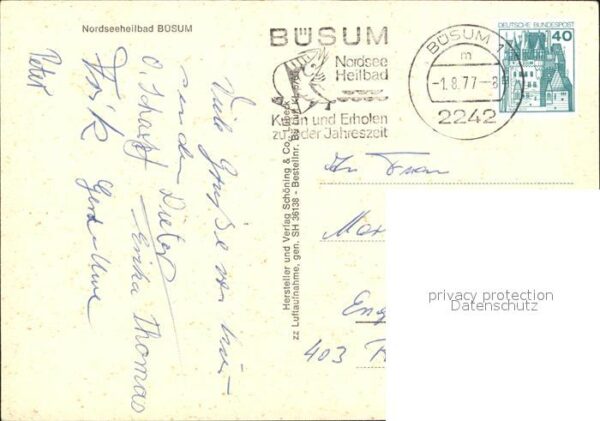 Nordseeheilbad BÜSUM
BÜSUM
Nordsee
Heilbad
Kuren und Erholen
zu jeder Jahreszeit
BÜSUM 1
m
-1.8.77-8
2242
DEUTSCHE BUNDESPOST
40
Viele Grüße von hier
senden Dieter
O. Scharf Erika Thomas
Gerda Uwe
Peter
Hersteller und Verlag Schöning & Co., Lübeck
zz Luftaufnahme, gen. SH 36138 - Bestellnr.
An Frau
403
privacy protection
Datenschutz